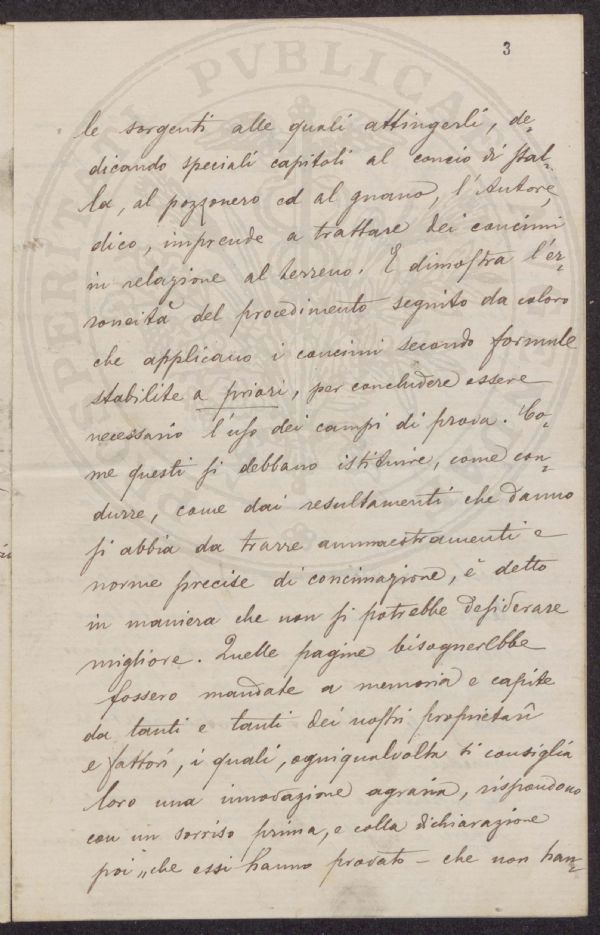 3
le sorgenti alle quali attingerli, de-
dicando speciali capitoli al concio di stal-
la, al pozzonero ed al guano, l'Autore,
dico, imprende a trattare dei concimi
in relazione al terreno. E dimostra l'er-
roneità del procedimento seguito da coloro
che applicano i concimi secondo formule
stabilite a priori, per concludere essere
necessario l'uso dei campi di prova. Co-
me questi si debbano istituire, come con-
durre, come dai resultamenti che danno
si abbia da trarre ammaestramenti e
norme precise di concimazione, è detto
in maniera che non si potrebbe desiderare
migliore. Quelle pagine bisognerebbe
fossero mandate a memoria e capite
da tanti e tanti dei nostri proprietarî
e fattori, i quali, ogniqualvolta si consiglia
loro una innovazione agraria, rispondono
con un sorriso prima, e colla dichiarazione
poi „che essi hanno provato – che non han-
PVBLICAE
PROSPERITATI